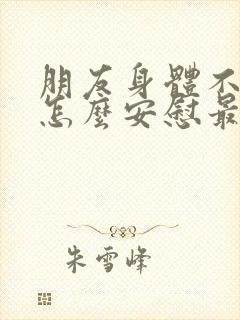 朋友身體不
怎麼安慰最
朱雪峰